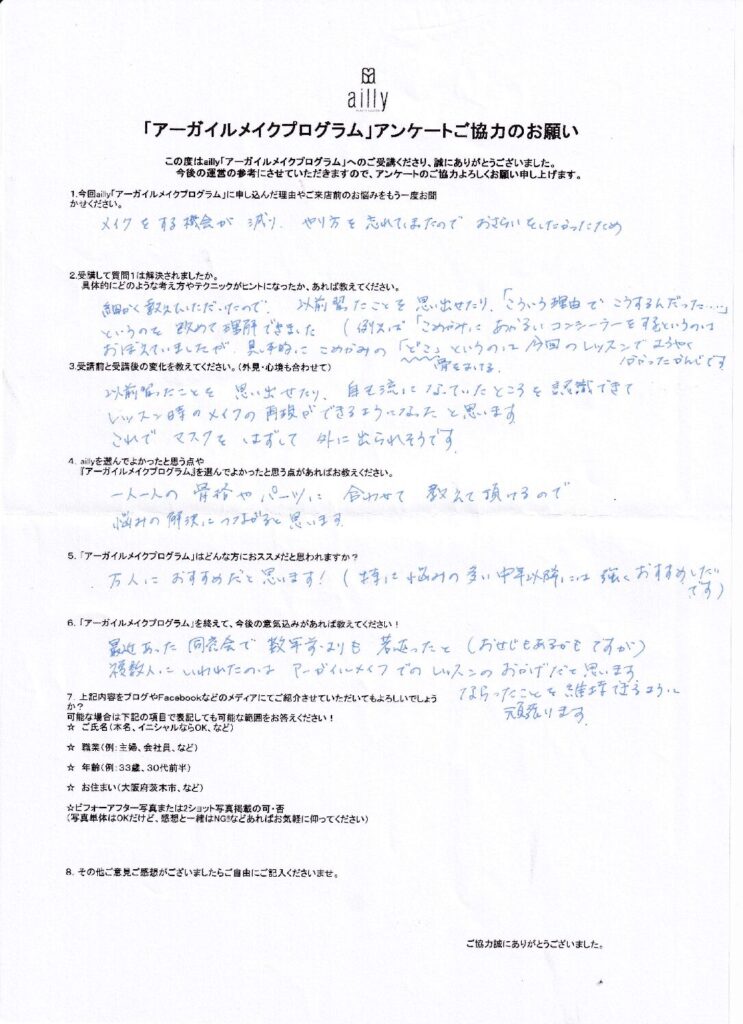 ailly
「アーガイルメイクプログラム」アンケートご協力のお願い
この度はailly「アーガイルメイクプログラム」へのご受講くださり、誠にありがとうございました。
今後の運営の参考にさせていただきますので、アンケートのご協力よろしくお願い申し上げます。
1.今回ailly「アーガイルメイクプログラム」に申し込んだ理由やご来店前のお悩みをもう一度お聞
かせください。
メイクをする機会が減り、やり方を忘れてしまったので おさらいをしたかったため
2.受講して質問1は解決されましたか。
具体的にどのような考え方やテクニックがヒントになったか、あれば教えてください。
細かく教えていただいたので、以前習ったことを思い出せたり、「こういう理由でこうするんだった……」
というのを改めて理解できました (例えば「こめかみにあかるいコンシーラーをするというのは
おぼえていましたが、具体的にこめかみの「どこ」というのは今回のレッスンでようやく
わかったかんじです。
3.受講前と受講後の変化を教えてください。(外見・心境も合わせて)
以前習ったことを思い出せたり、自己流になっていたところを認識できて
レッスン時のメイクの再現ができるようになったと思います
これで マスクを はずして 外に出られそうです。
4. aillyを選んでよかったと思う点や
『アーガイルメイクプログラム』を選んでよかったと思う点があればお教えください。
一人一人の骨格やパーツに合わせて教えて頂けるので
悩みの解決につながると思います
5.「アーガイルメイクプログラム」はどんな方におススメだと思われますか?
万人におすすめだと思います! (特に悩みの多い中年以降には強くおすすめしたい
です)
6.「アーガイルメイクプログラム」を終えて、今後の意気込みがあれば教えてください!
最近あった同窓会で数年前よりも若返ったと (おせじもあるかもですが)
複数人にいわれたのは アーガイルメイクでのレッスンのおかげだと思います
ならったことを維持できるように
頑張ります。
7. 上記内容をブログやFacebookなどのメディアにてご紹介させていただいてもよろしいでしょう
か?
可能な場合は下記の項目で表記しても可能な範囲をお答えください!
☆ ご氏名(本名、イニシャルならOK、など)
☆ 職業(例:主婦、会社員、など)
☆ 年齢(例:33歳、30代前半)
☆ お住まい(大阪府茨木市、など)
☆ビフォーアフター写真または2ショット写真掲載の可・否
(写真単体はOKだけど、感想と一緒はNG!!などあればお気軽に仰ってください)
8. その他ご意見ご感想がございましたらご自由にご記入くださいませ。
ご協力誠にありがとうございました。